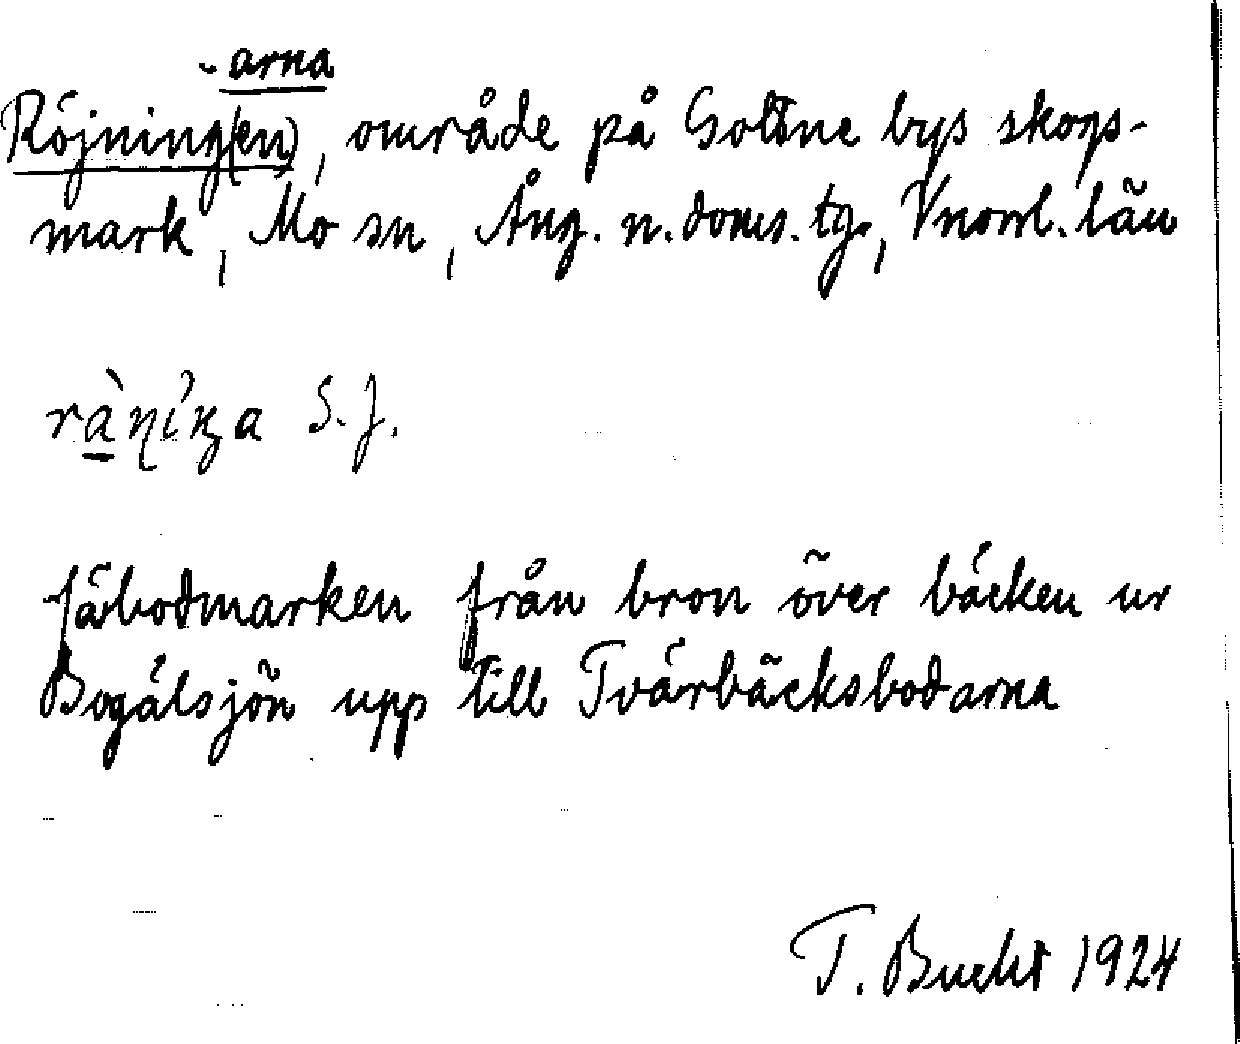 -arna
Röjning(en), område på Gottne bys skogs-
mark, Mo sn, Ång. n. doms. tg., Vnorrl. län
S. J.
fäbodmarken från bron över bäcken ur
Bogålsjön upp till Tvärbäcksbodarna
T. Bucht 1924